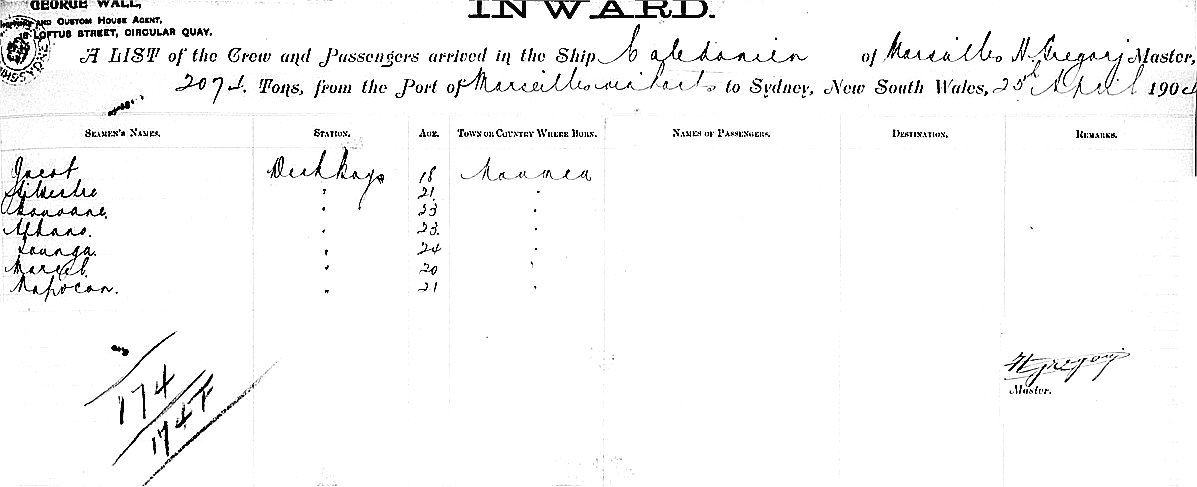 GEORGE WALL,
AND CUSTOM HOUSE AGENT,
LOFTUS STREET, CIRCULAR QUAY.
INWARD.
A LIST of the Crew and Passengers arrived in the Ship Caledonien of Marseilles H. Gregorj Master,
2074 Tons, from the Port of Marseilles via Ports to Sydney, New South Wales, 25th April 1904
SEAMEN'S NAMES. STATION. AGE. TOWN OR COUNTRY WHERE BORN. NAMES OF PASSENGERS. DESTINATION. REMARKS.
Deck Boys 18 Noumea
Silvestre " 21 "
" 23 "
Albano. " 23. "
Lounga. " 24 "
Marcel. " 20 "
Mapocan. " 21 "
H Gregorj
Master.
174
174 F